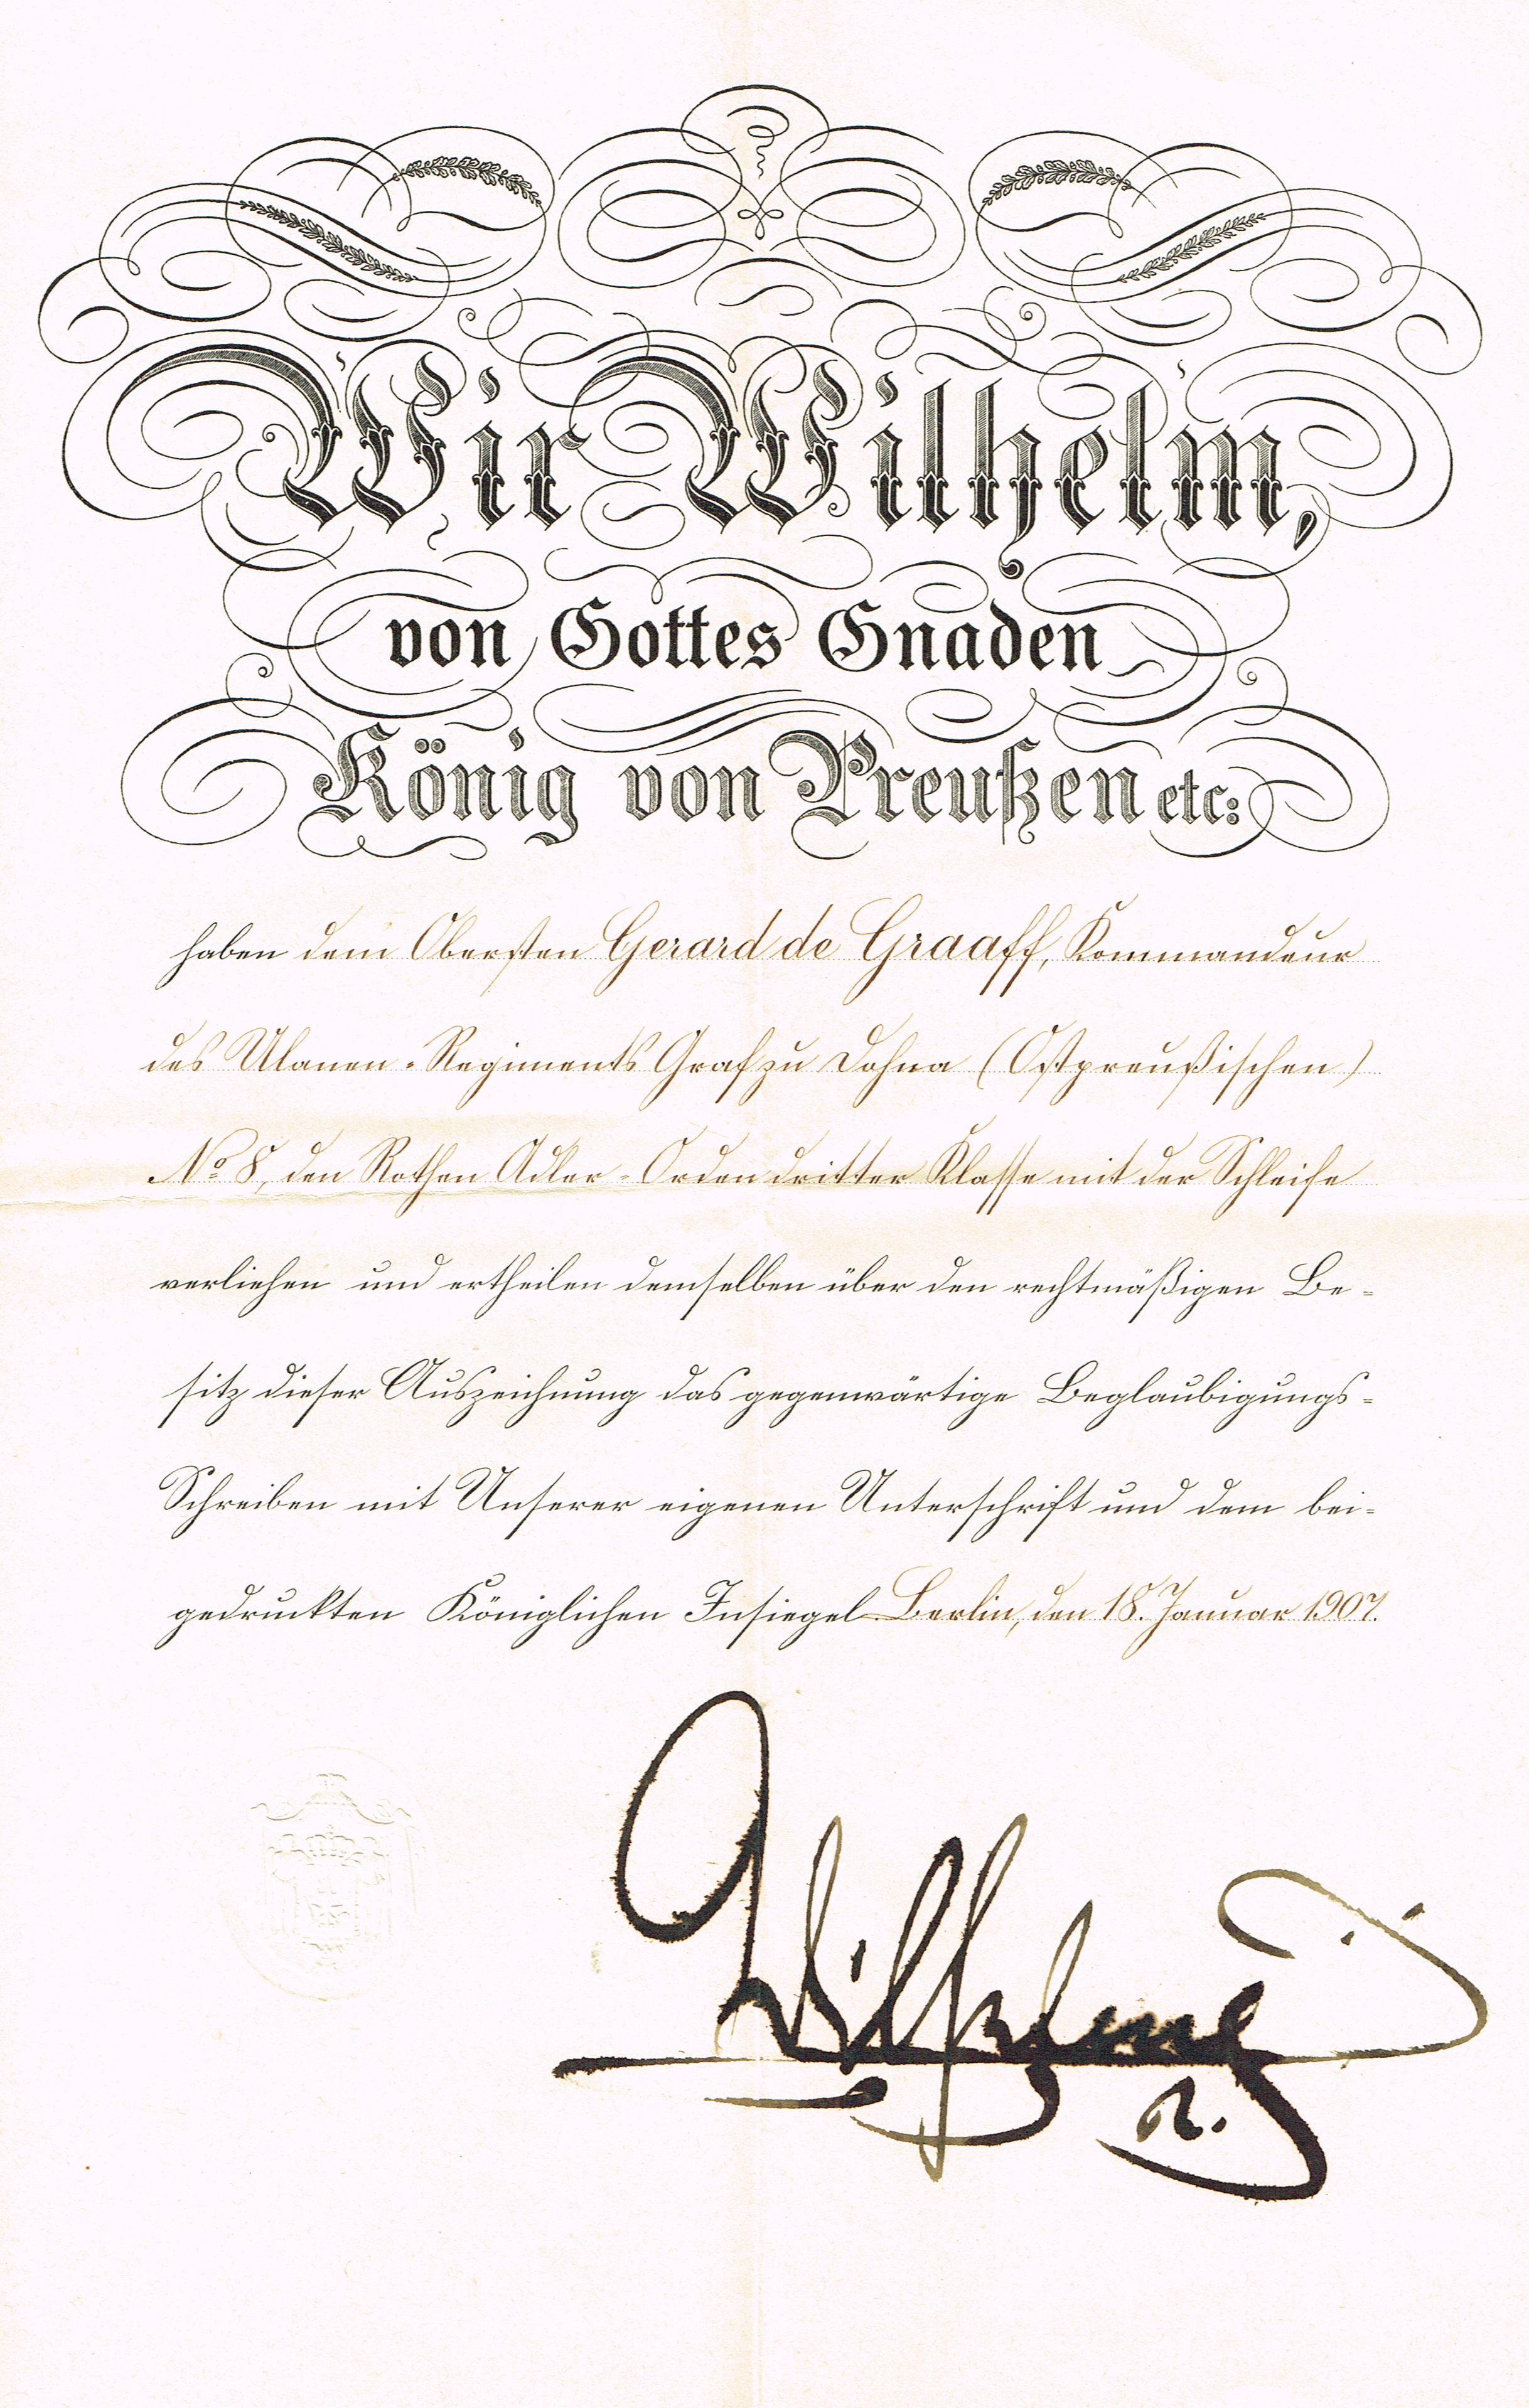 Wir Wilhelm,
von Gottes Gnaden
König von Preußen etc:
haben dem Obersten Gerard de Graaff, Kommandeur
des Ulanen-Regiments Graf zu Dohna (Ostpreußischen)
No 8, den Rothen Adler-Orden dritter Klasse mit der Schleife
verliehen und ertheilen demselben über den rechtmäßigen Be-
sitz dieser Auszeichnung das gegenwärtige Beglaubigungs-
Schreiben mit Unserer eigenen Unterschrift und dem bei-
gedruckten Königlichen Insiegel Berlin, den 18. Januar 1907.
Wilhelm
R.